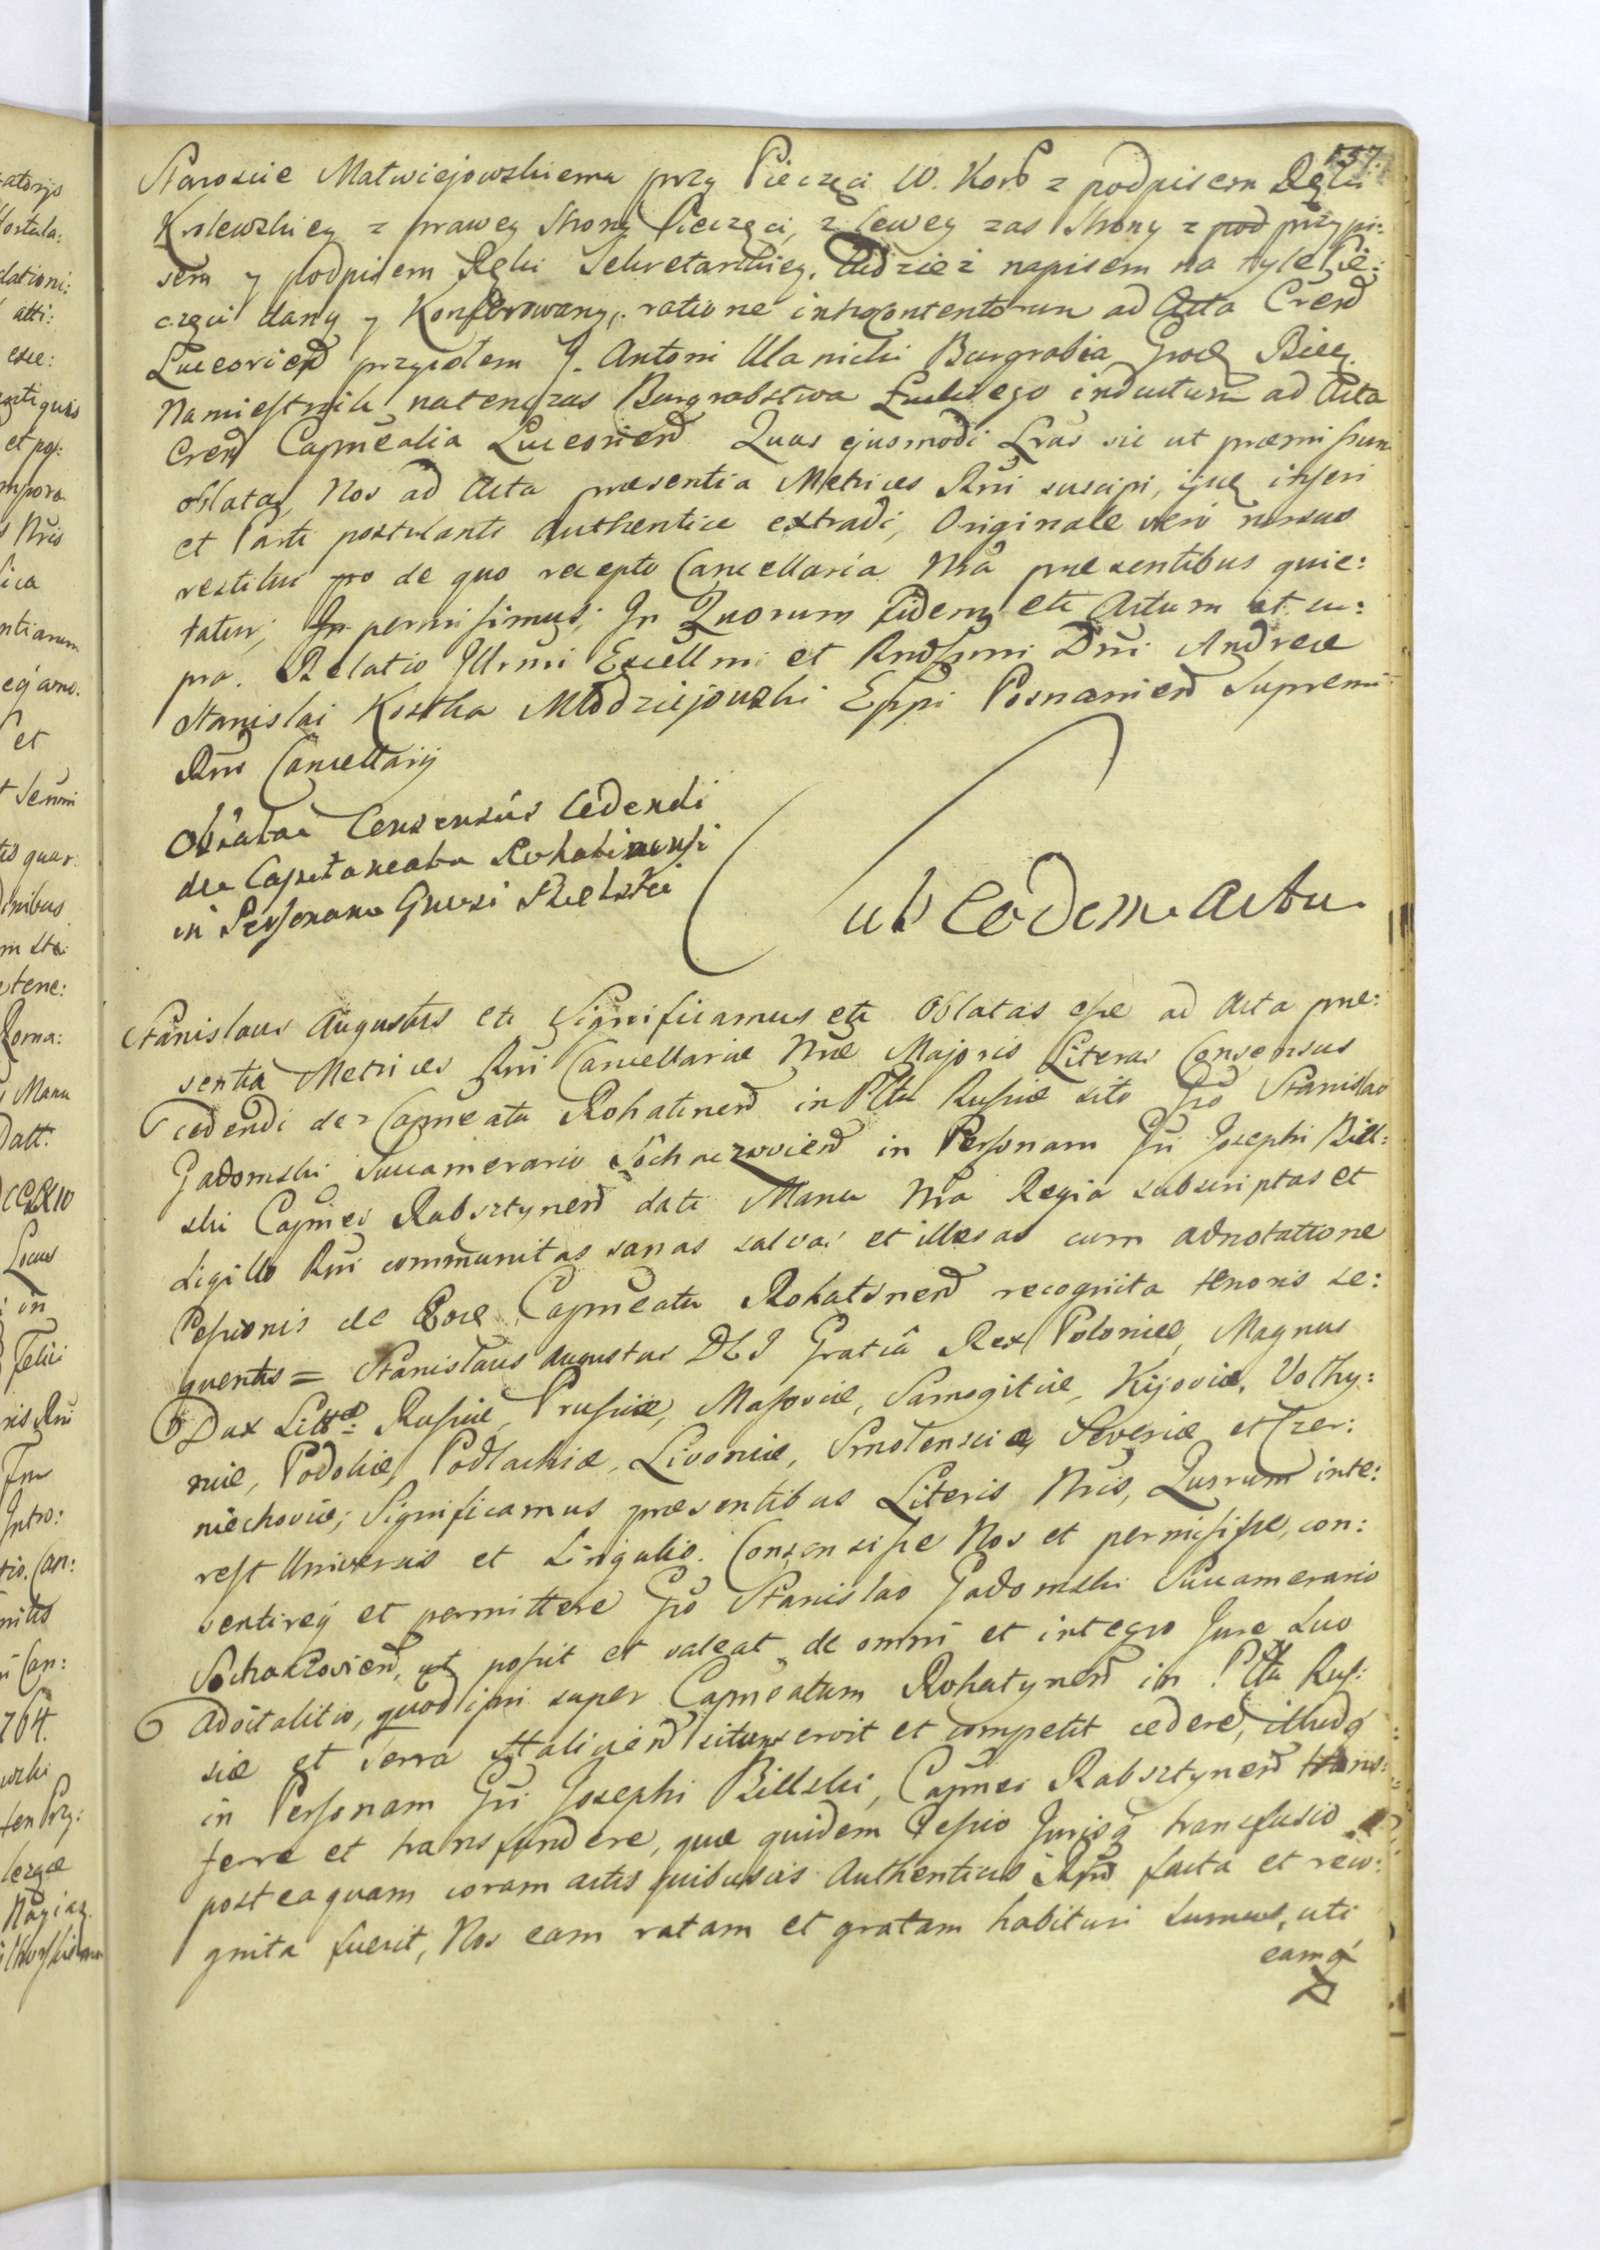 157.
Starosćie Matwiejowskiemu przy Pieczęci W. Kor z podpisem Ręki
Krolewskiey z prawey strony Pieczęci, z lewey zas strony z pod przypi:
sem y podpisem Ręki Sekretarskiey, tudzież napisem na tyle Pie:
częci dany y Konferowany, ratione introcontentorum ad Acta Cren
Luceorien przyiołem J. Antoni Ulanicki Burgrabia Grod
Namiestnik natenczas Burgrabstwa Łuckiego inductum ad Acta
Cren Capnealia Luceorien Quas ejusmodi Lras sic ut præmissum
oblatas, Nos ad Acta præsentia Metrices Rni suscipi, ijsq inseri
et Parti postulanti authentice extradi, Originale vero rursus
restitui pro de quo recepto Cancellaria Nra præsentibus quie:
tatur; In permisimus; In Quorum fidem etc Actum ut su:
pra. Relatio Illrmi Excellmi et Rndssimi Dni Andreæ
Stanislai Kostka Młodziejowski Eppi Posnanien Supremi
Rni Cancellarij
Oblatæ Consensus Cedendi
de Capitaneatu Rohatinensi
in Personam Gnosi Bielski
sub Eodem Actu
Stanislaus Augustus etc Significamus etc Oblatas esse ad Acta præ:
sentia Metrices Rni Cancellariæ Nræ Majoris Literas Consensus
cedendi de Capneatu Rohatinen in Pltu Russiæ sito Gso Stanislao
Gadomski Succamerario Sochaczovien in Personam Gsi Josephi Biel:
ski Capnei Rabsztynen dati Manu Nra Regia subscriptas et
Sigillo Rni communitas sanas salvas et illesas cum adnotatione
Cessionis de Eoe Capneatu Rohatinen recognita tenoris se:
quentis = Stanislaus Augustus DEI Gratiâ Rex Poloniæ, Magnus
Dux Litt: Russiæ, Prussiæ, Masoviæ, Samogitiæ, Kijoviæ, Volhy:
niæ, Podoliæ, Podlachiæ, Livoniæ, Smolensciæ, Severiæ et Czer:
niechoviæ; Significamus præsentibus Literis Nris, Quorum inte:
rest Universis et Singulis. Consensisse Nos et permisisse, con:
sentireq et permittere Gso Stanislao Gadomski Succamerario
Sochaczovien, ut possit et valeat de omni et integro Jure Suo
Advitalitio, quod ipsi super Capneatum Rohatynen in Pltu Rus:
siæ et Terra Halicien situm servit et competit cedere, illudq
in Personam Gsi Josephi Bielski, Capnei Rabsztynen trans:
ferre et transfundere, quæ quidem Cessio Jurisq transfusio
posteaquam coram actis quibusvis Authenticis Rni facta et reco:
gnita fuerit, Nos eam ratam et gratam habituri sumus, uti
eamq